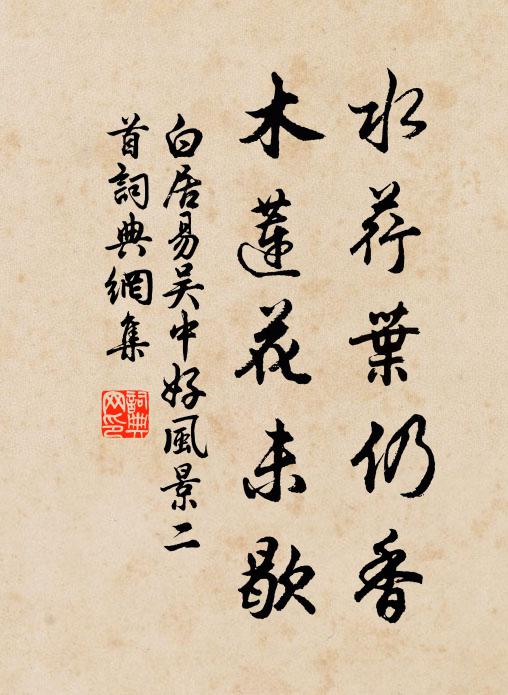 水荇葉仍香
木蓮花未歇
白居易吳中好風景二
首詞典網集
詞典
网印